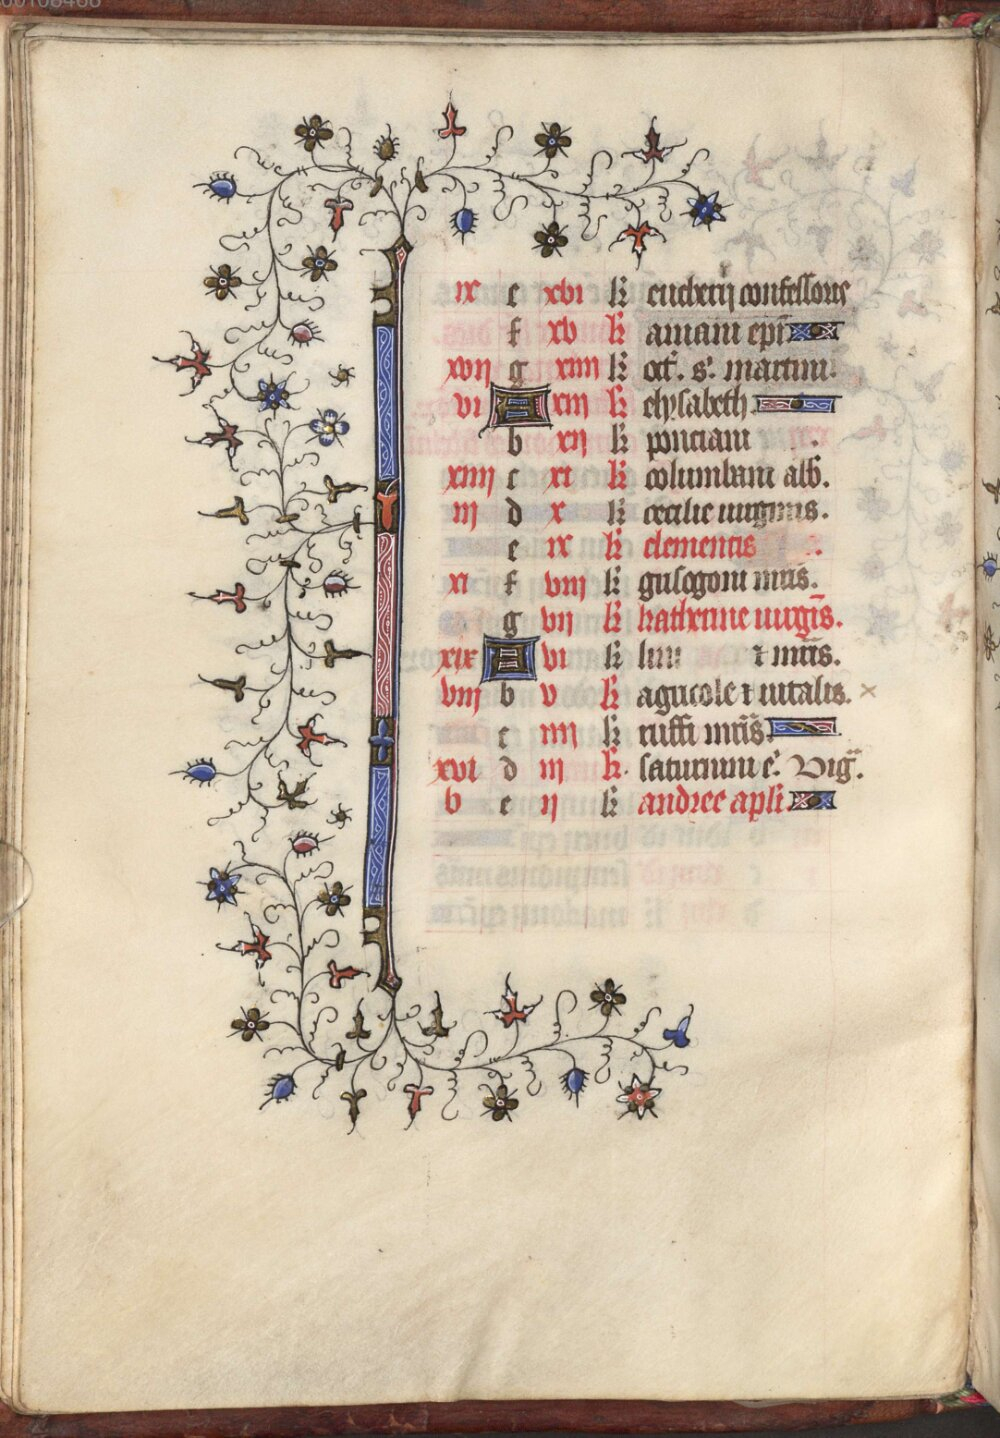 ix e xvi kł eucherij confessoris
f xv kł aniani epī
xvij g xiiii kł oct̄. s. martini.
vi A xiii kł elysabeth
b xij kł ponciani .
xiiij c xi kł columbani alb̄.
iij d x kł cecilie uirginis.
e ix kł clementis .
xi f viij kł grisogoni mr̄is.
g vij kł katherine uirgīs.
xix A vi kł lini ⁊ mr̄is.
viij b v kł agricole ⁊ uitalis. ×
c iiij kł ruffi mr̄is
xvi d iij kł. saturnini ē. Viḡ.
v e ij kł andree apl̄i